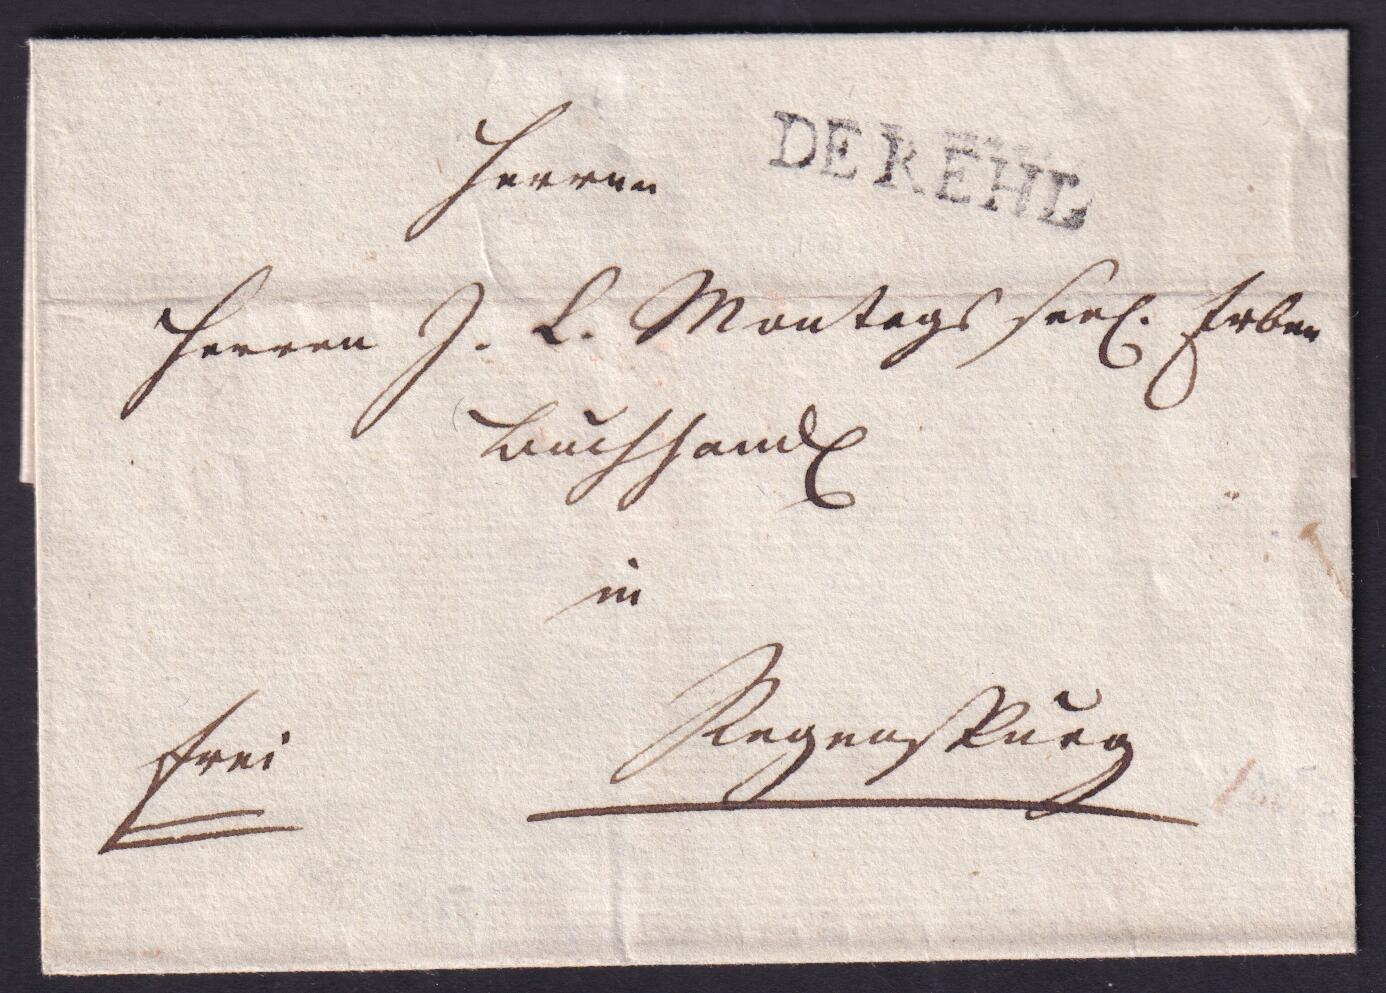 DE KEHL
Herren
Herren J. L. Montags seel. Erben
Buchhandl
in
Regensburg
frei